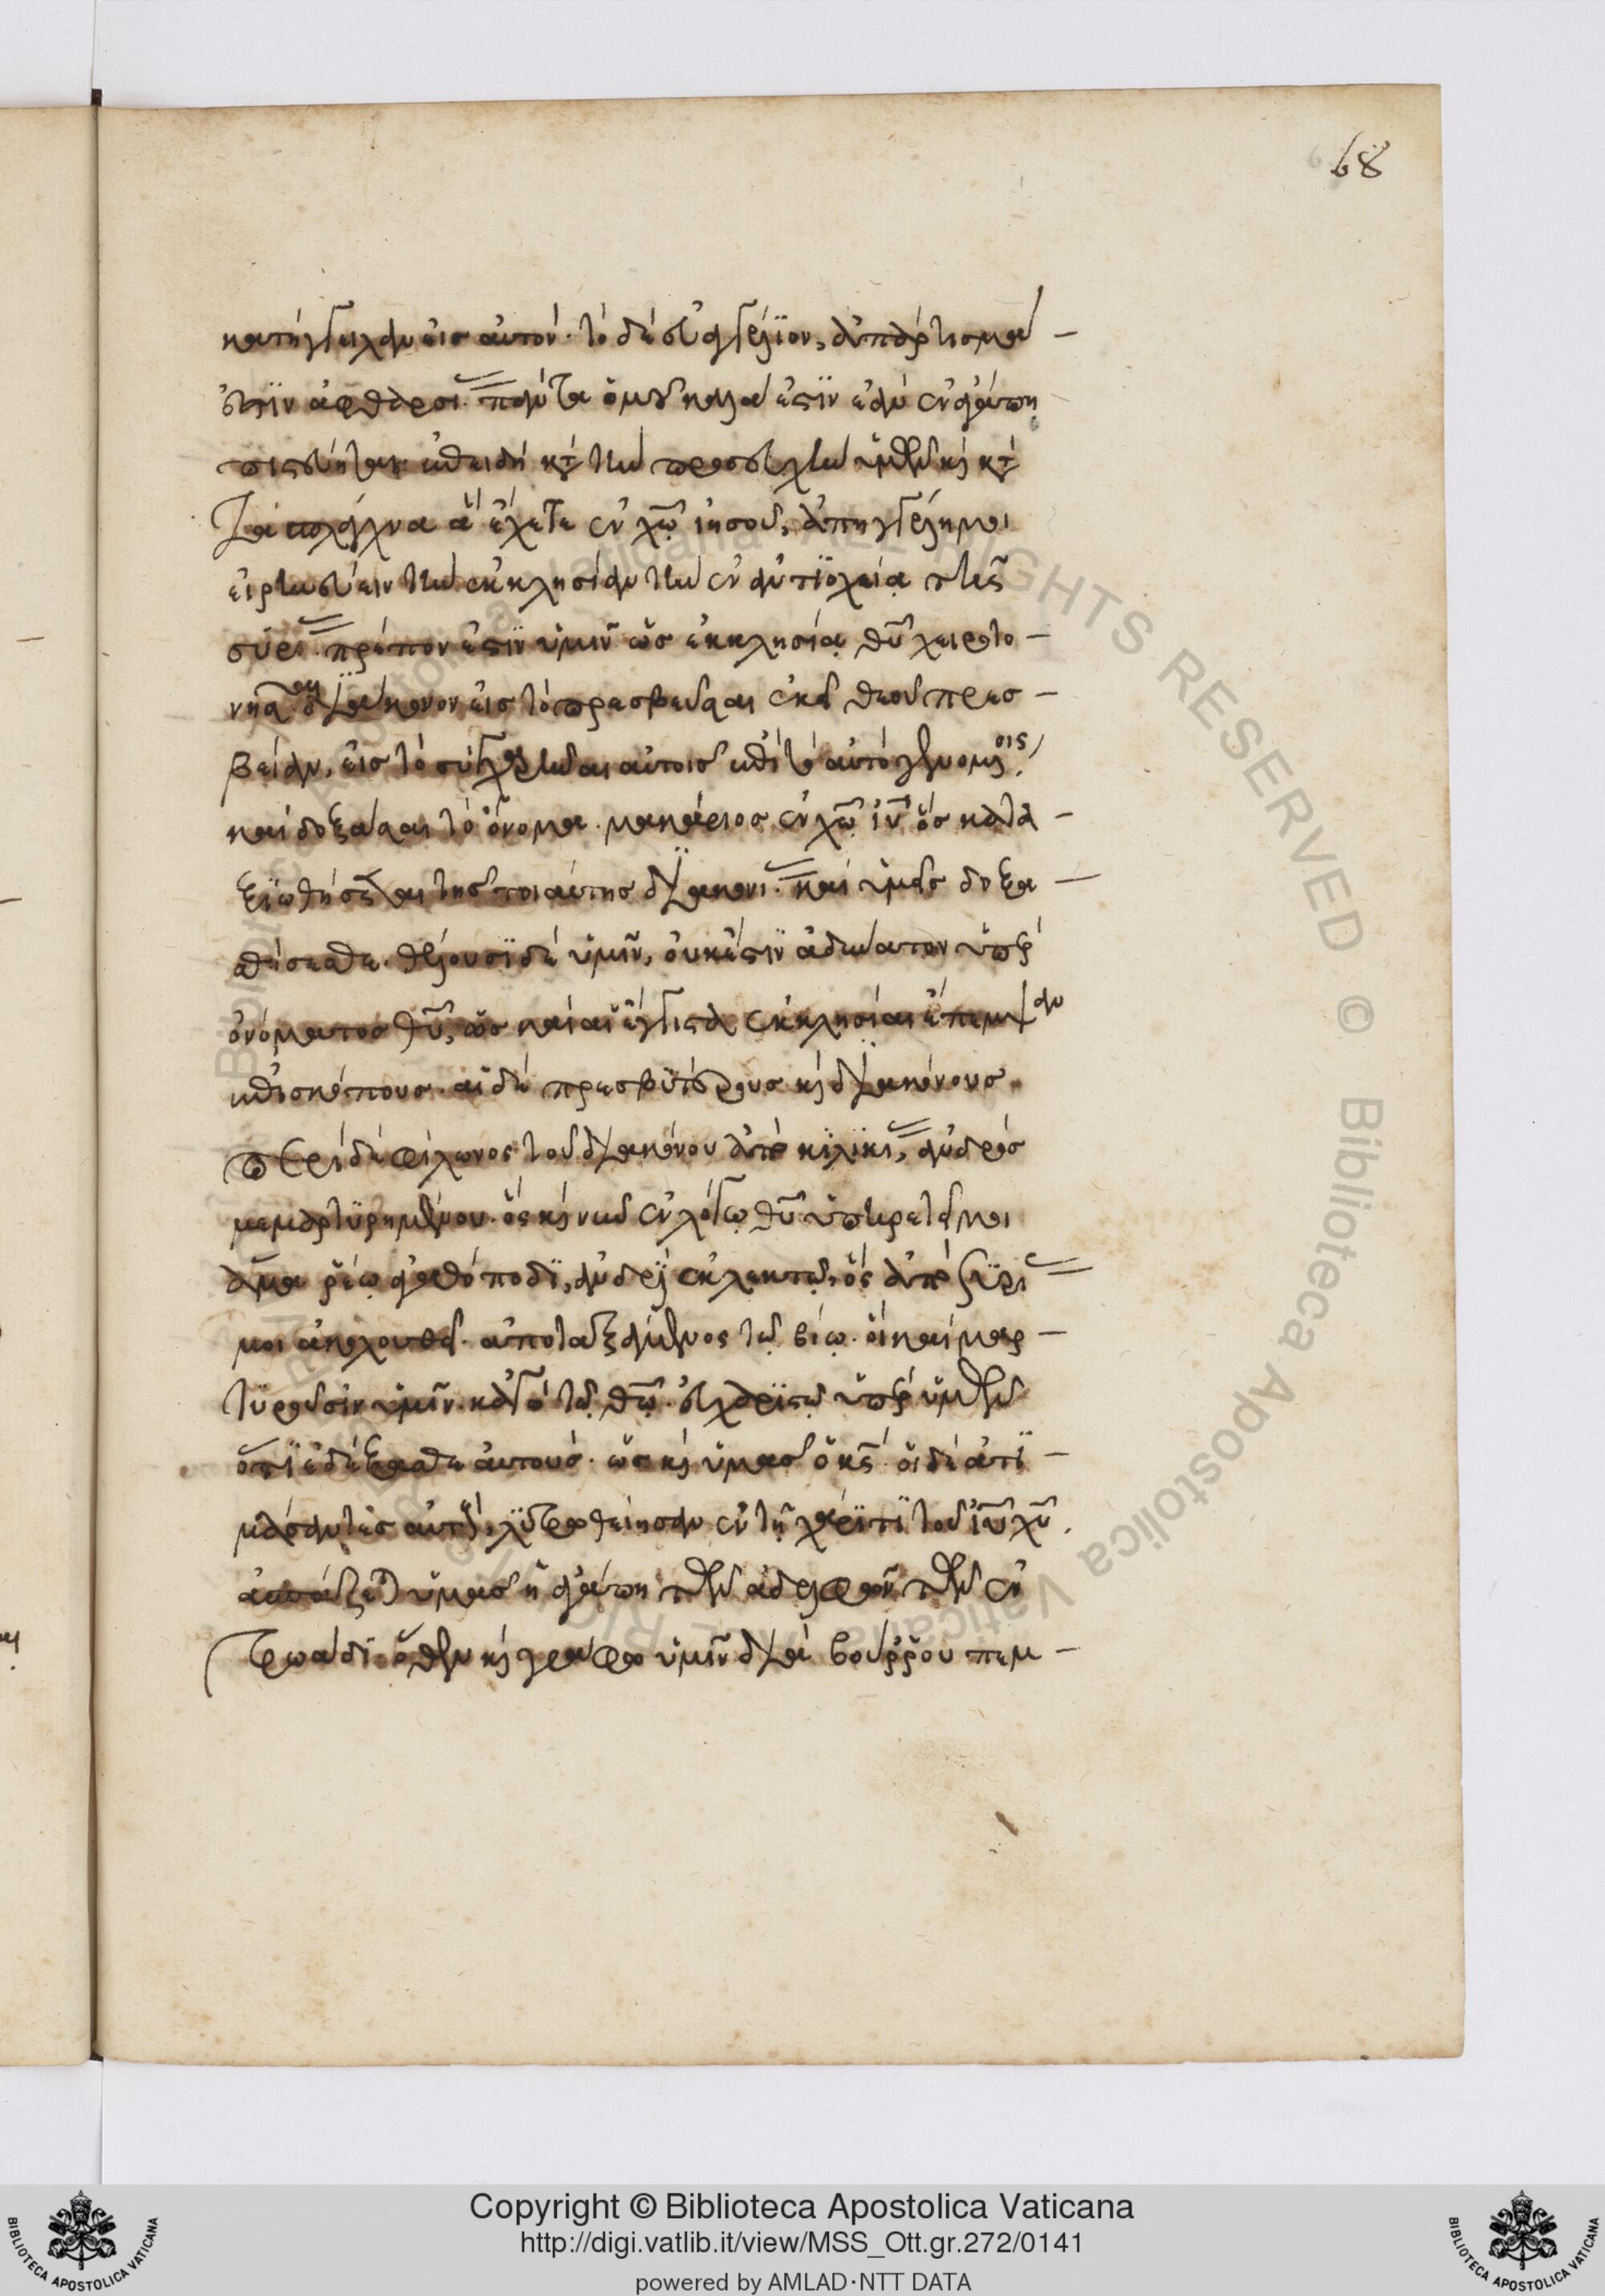 68
κατήγγειλαν εἰς αὐτόν· τὸ δὲ εὐαγγέλϊον, ἀπάρτισμά
ἐστϊν ἀφθαρσί. πάντα ὁμοῦ καλά ἐστϊν ἐὰν ἐν ἀγάπῃ
πιστεύητε. ἐπειδὴ κατὰ τὴν προσευχὴν ὑμῶν καὶ κατὰ
τὰ σπλάγχνα ἃ ἔχετε ἐν χω ἰησοῦ, ἀπηγγέλη μοι
εἰρηνεύειν τὴν ἐκκλησίαν τὴν ἐν ἀντϊοχείᾳ τῆς
συρί. πρέπον ἐστϊν ὑμῖν ὡς ἐκκλησίᾳ θυ χειροτο
νῆσαι δϊάκονον εἰς τὸ πρεσβεῦσαι ἐκεῖ θεοῦ πρεσ
βείαν, εἰς τὸ συγχαρῆναι αὐτοῖς ἐπὶ τὸ αὐτὸ γενομένοις
καὶ δοξάσαι τὸ ὄνομα. μακάριος ἐν χω ιυ ὃς κατα
ξϊωθήσεται τῆς τοιαύτης δϊακονί. καὶ ὑμεῖς δοξα
σθήσεσθε. θέλουσϊ δὲ ὑμῖν, οὐκ ἔστϊν ἀδύνατον ὑπὲρ
ὀνόματος θυ, ὡς καὶ αἱ ἔγγιστα ἐκκλησίαι ἔπεμψαν
ἐπισκόπους. αἱ δὲ πρεσβϋτέρους καὶ δϊακόνους.
περὶ δὲ φίλωνος τοῦ δϊακόνου ἀπὸ κϊλϊκί, ἀνδρὸς
μεμαρτϋρημένου. ὃς καὶ νῦν ἐν λόγῳ θυ ὑπηρετεῖ μοι
ἅμα ῥέῳ ἀγαθόποδϊ, ἀνδρϊ ἐκλεκτῷ, ὃς ἀπὸ σϋρί
μοι ἀκολουθεῖ. ἀποταξάμενος τῷ βίῳ. οἳ καὶ μαρ
τϋροῦσϊν ὑμῖν. κἀγὼ τῷ θω εὐχαρϊστῶ ὑπὲρ ὑμῶν
ὅτϊ ἐδέξασθε αὐτούς. ὡς καὶ ὑμᾶς ὁ κς. οἱ δὲ ἀτϊ
μάσαντες αὐτούς, λϋτρωθείησαν ἐν τῇ χάρϊτϊ τοῦ ιυ χυ.
ἀσπάζεται ὑμᾶς ἡ ἀγάπη τῶν ἀδελφῶν τῶν ἐν
τρωάδϊ. ὅθεν καὶ γράφω ὑμῖν δϊὰ βούρρου πεμ
Copyright © Biblioteca Apostolica Vaticana
http://digi.vatlib.it/view/MSS_Ott.gr.272/0141
powered by AMLAD·NTT DATA